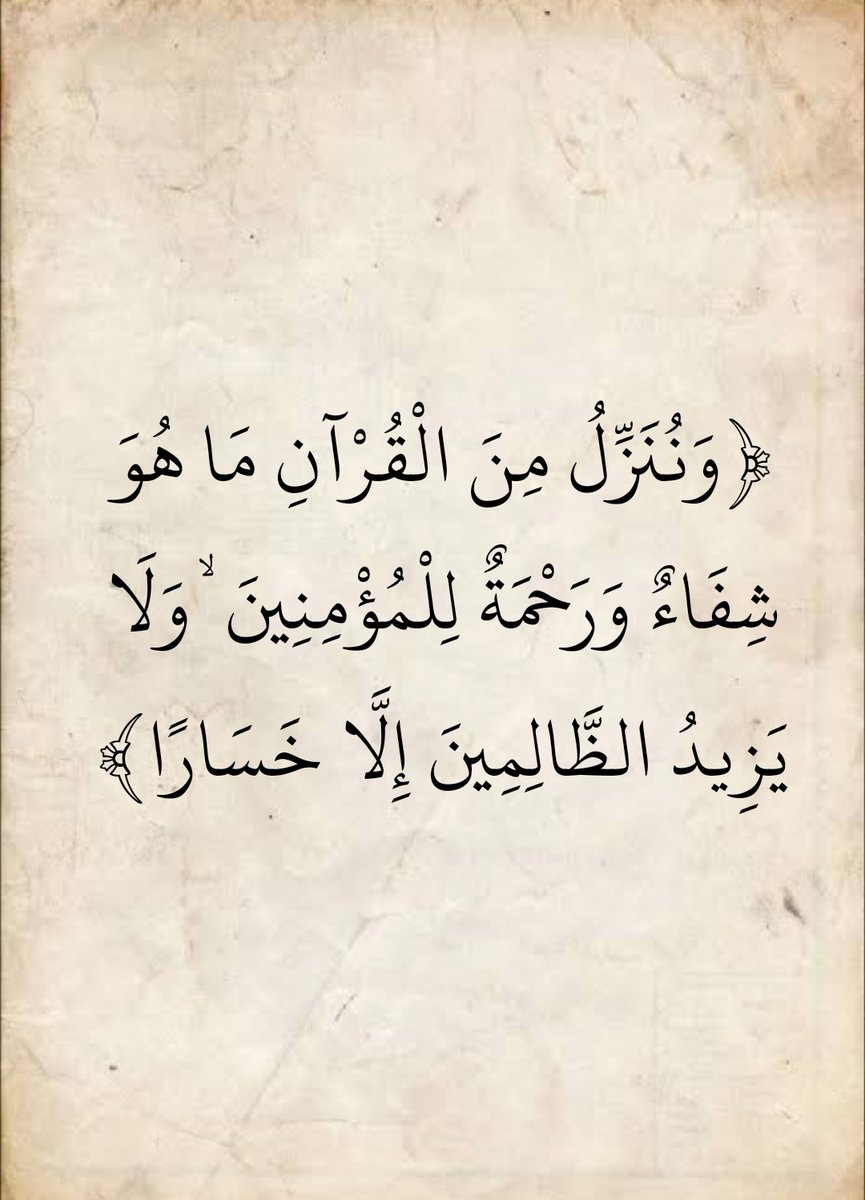 ﴿وَنُنَزِّلُ مِنَ الْقُرْآنِ مَا هُوَ
شِفَاءٌ وَرَحْمَةٌ لِلْمُؤْمِنِينَ ۙ وَلَا
يَزِيدُ الظَّالِمِينَ إِلَّا خَسَارًا﴾